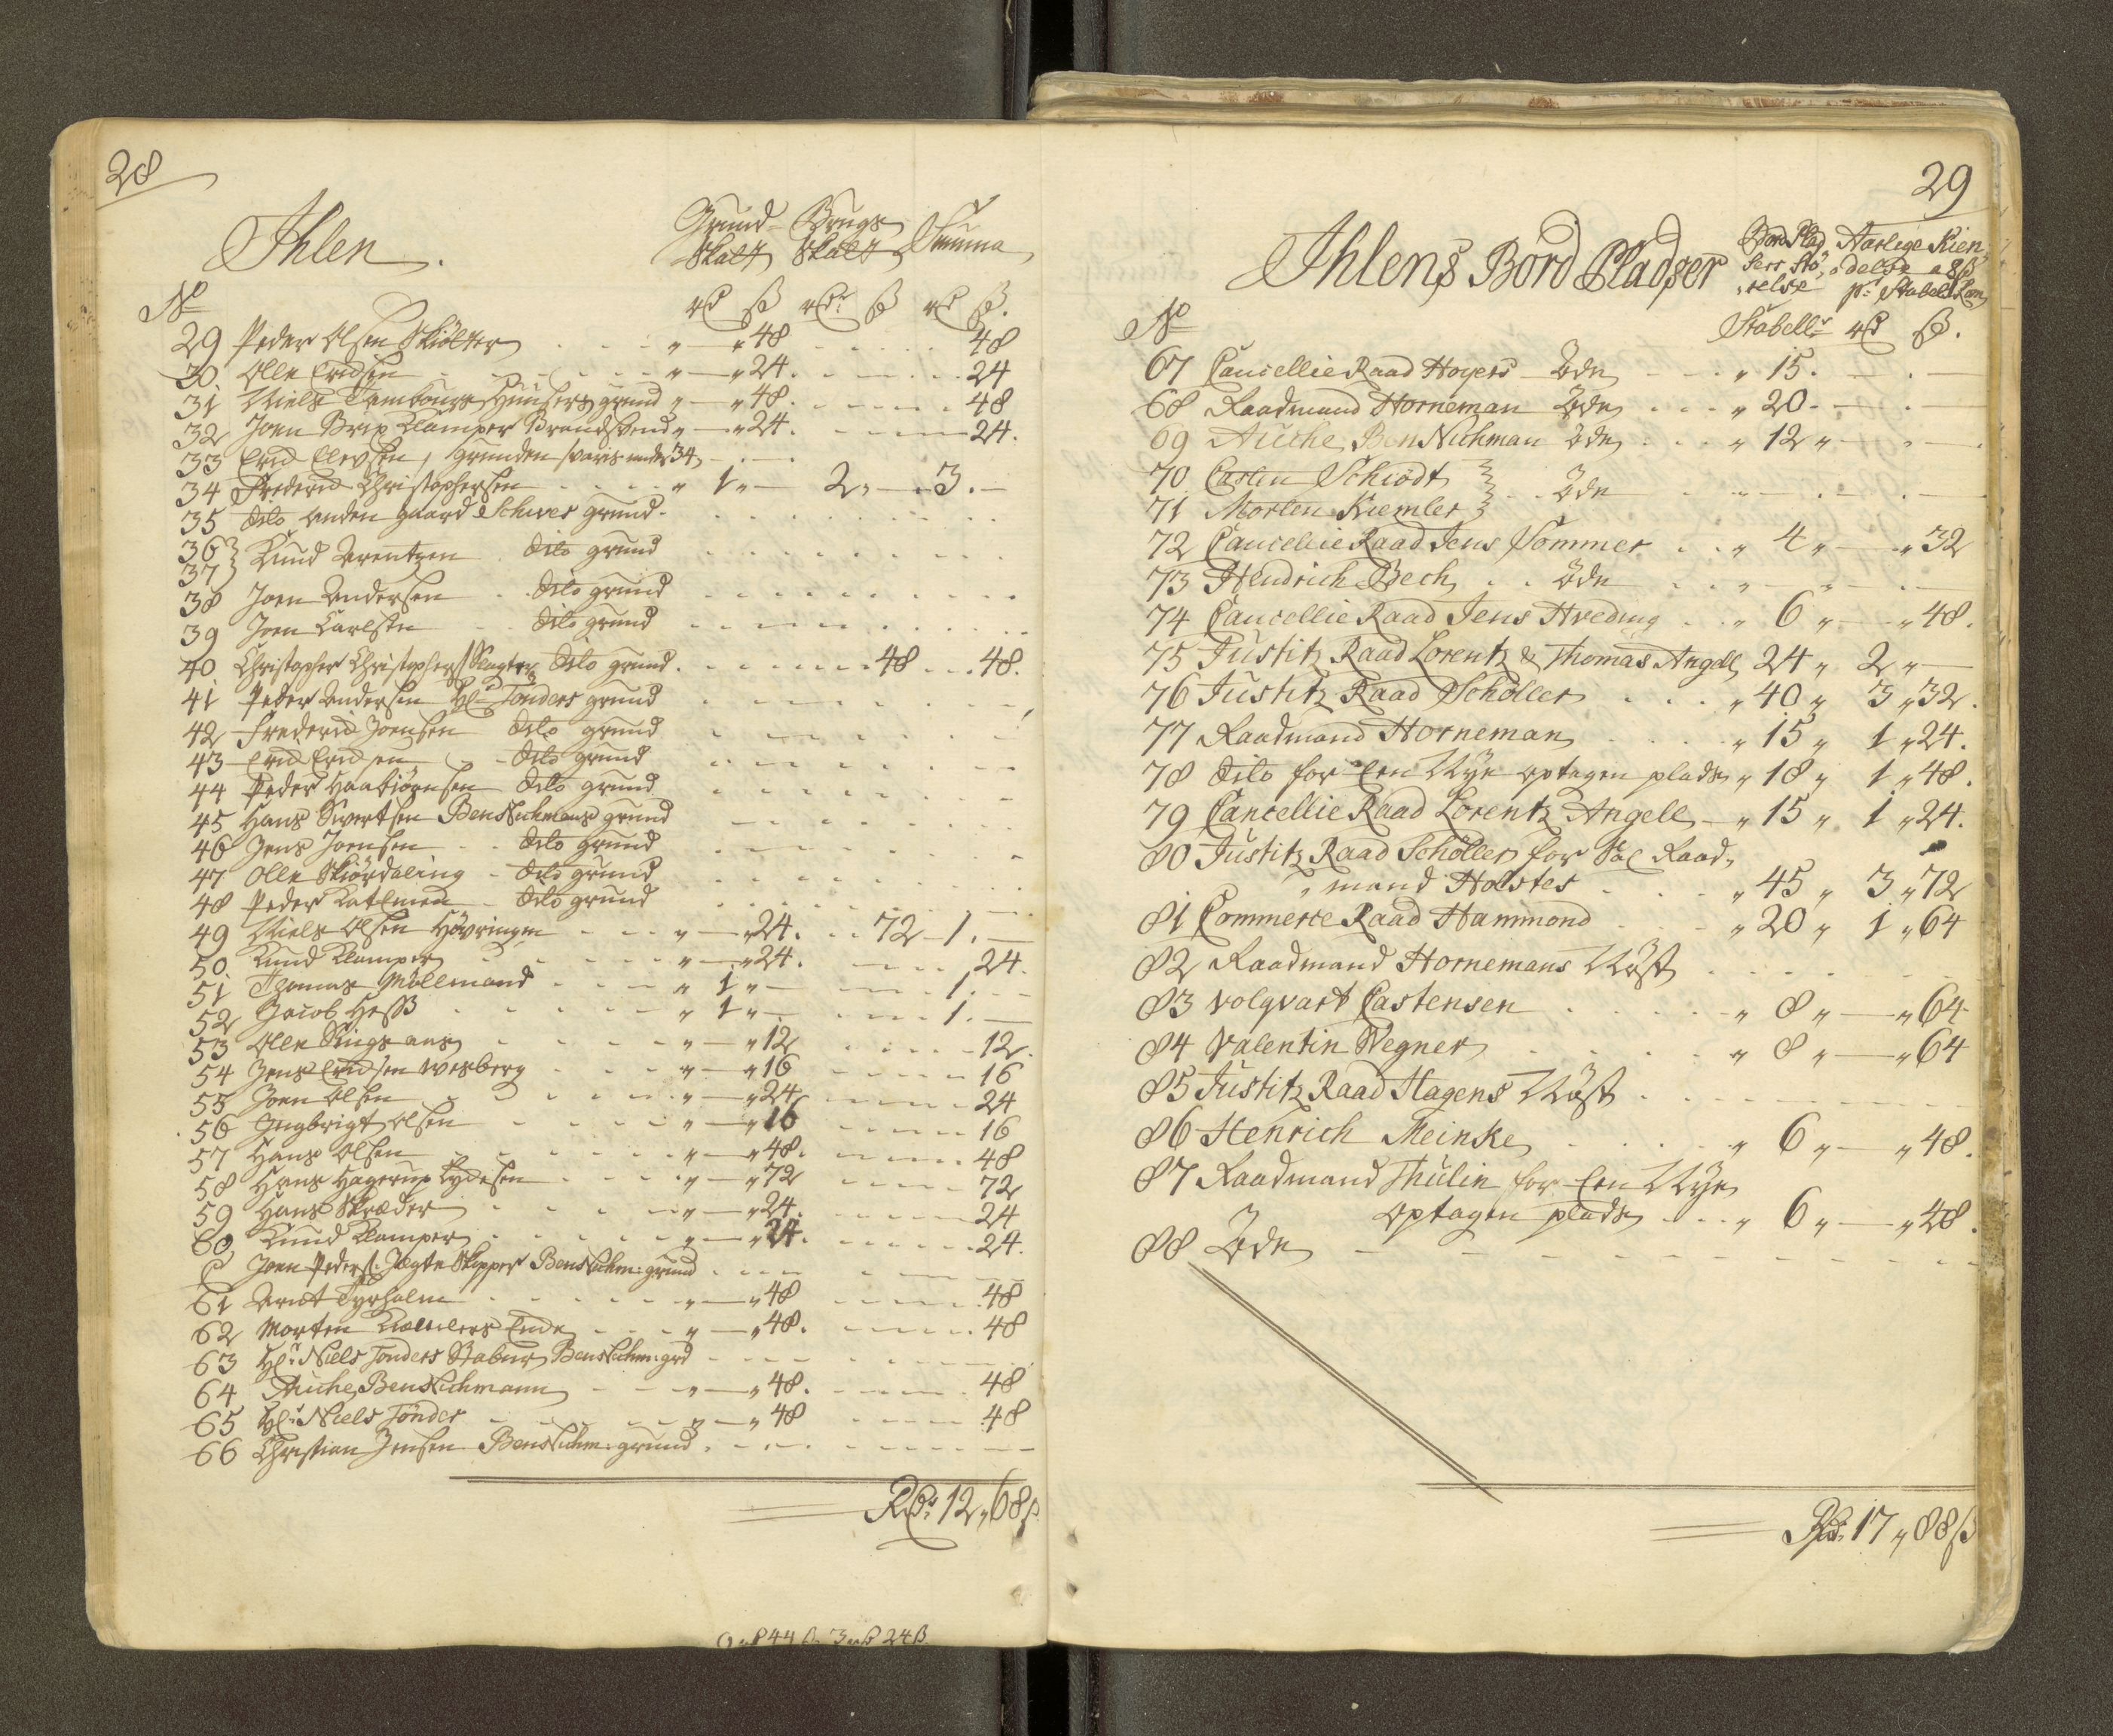 28
Ihlen.
Grund Skatt Brugs Skatt Summa
No rd ß rdr ß rd ß.
29 Peder Olsen Skiölter „ — „ 48 48
30 Olle Erichsen „ — „ 24. 24
31 Niels Tambours Huusets grund „ — „ 48. 48
32 Joen Brix Klamper Brandsvend „ — „ 24. 24.
33 Erich Elevsen, grunden svaris under 34
34 Frederich Christophersen „ 1 „ — 2 „ — 3. —
35 dito anden gaard Schives grund
36 } Knud Arentzen dito grund
37 }
38 Joen Andersen dito grund
39 Joen Carlsen dito grund
40 Christopher Christophers: Slagter dito grund. 48 48.
41 Peder Andersen Hl: Tonders grund
42 Frederich Joensen dito grund
43 Erich Erichsen dito grund
44 Peder Haabiörnsen dito grund
45 Hans Sivertsen Ben Nichmans grund
46 Jens Joensen dito grund
47 Olle Skiördaling dito grund
48 Peder dito grund
49 Niels Olsen Hövringen „ — „ 24. 72 1. —
50 Knud Klamper „ — „ 24. 24.
51 Thomas Möllemand „ 1 „ — 1. —
52 Jacob Hess „ 1 „ — 1. —
53 Olle Ringsaas „ — „ 12 12.
54 Jens Erichsen Wesberg „ — „ 16 16
55 Joen Olsen „ — „ 24 24
56 Ingbrigt Olsen „ — „ 16 16
57 Hans Olsen „ — „ 48. 48
58 Hans Hagerup Lydersen „ — „ 72 72
59 Hans Skræder „ — „ 24. 24
60 Knud Klamper „ — „ 24. 24.
Joen Peders: Jægte Skipper Ben Nichm: grund
61 Arnt Tyrholm „ — „ 48 48
62 Morten Kiemlers Enke „ — „ 48. 48
63 Hl: Niels Tonders Stabur Ben Nichm: grd
64 Auche Ben Nichmann „ — „ 48. 48
65 Hl: Niels Tönder „ — „ 48 48
66 Christian Jensen Ben Nichm: grund
Rdr: 12 „ 68 ß
3 rd 24 ß
29
Ihlens Bord Pladser
Bord Plad, sers Stö, relse Aarlege Kien, delse a 8 ß pr Stabel Rom
No Stabellr rd ß.
67 Cancellie Raad Hoyers Öde „ 15. — . —
68 Raadmand Horneman Öde „ 20. — . —
69 Auche Ben Nichman Öde „ 12 „ — . —
70 Carsten Schiödt }
71 Morten Kiemler } Öde
72 Cancellie Raad Jens Sommer „ 4 „ — „ 32
73 Hendrich Bech Öde
74 Cancellie Raad Jens Hveding „ 6 „ — „ 48.
75 Justitz Raad Lorentz & Thomas Angell 24 „ 2 „ —
76 Justitz Raad Schöller „ 40 „ 3 „ 32.
77 Raadmand Horneman „ 15 „ 1 „ 24.
78 dito for Een Nye optagen plads „ 18 „ 1 „ 48.
79 Cancellie Raad Lorentz Angell — „ 15 „ 1 „ 24.
80 Justitz Raad Schöller for Sal Raad,
„ mand Holstes „ 45 „ 3 „ 72
81 Commerce Raad Hammond „ 20 „ 1 „ 64
82 Raadmand Hornemans Nöst
83 Volqvart Castensen „ 8 „ — „ 64
84 Valentin Wegner „ 8 „ — „ 64
85 Justitz Raad Hagens Nöst
86 Henrich Meinke „ 6 „ — „ 48.
87 Raadmand Thulin for Een Nye
optagen plads „ 6 „ — „ 48.
88 Öde
Rdr: 17 „ 88 ß